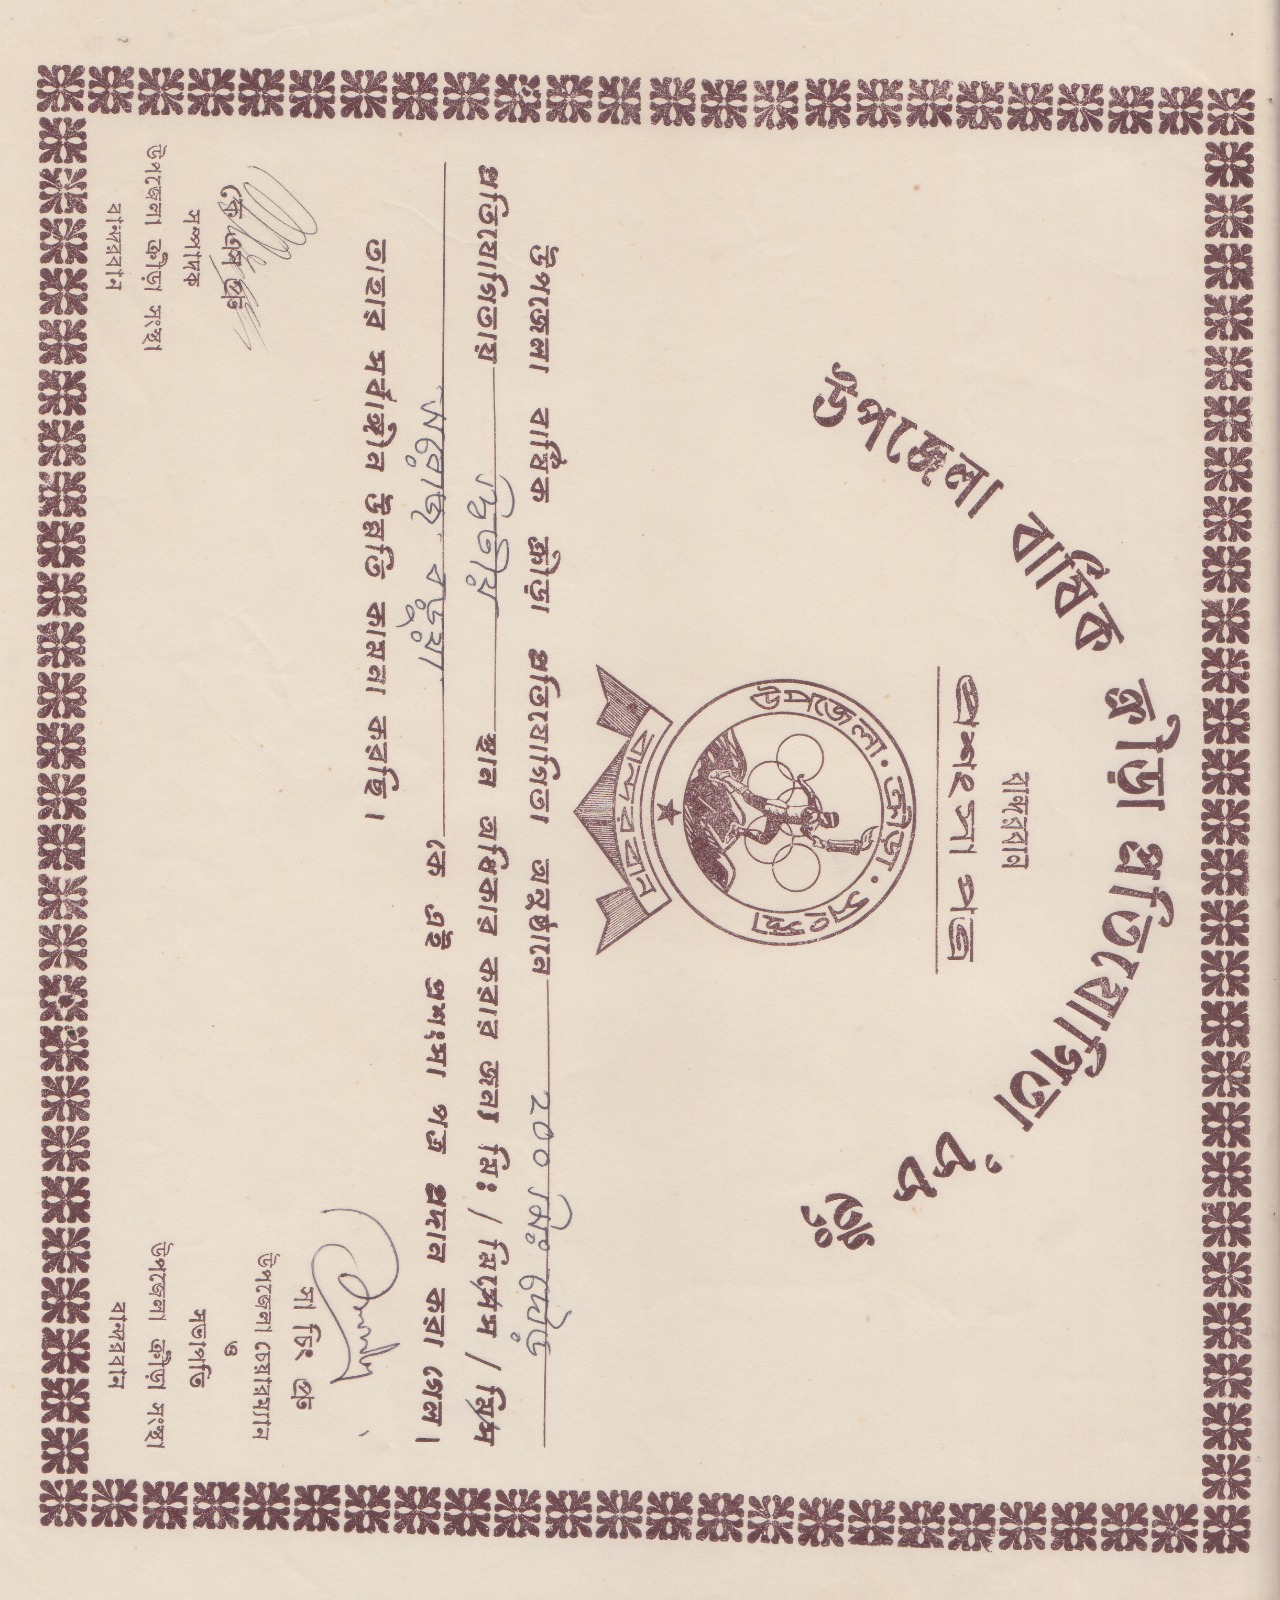 উপজেলা বার্ষিক ক্রীড়া প্রতিযোগিতা '৮৮ ইং
বান্দরবান
প্রশংসা পত্র
উপজেলা · ক্রীড়া · সংস্থা
বান্দরবান
উপজেলা বার্ষিক ক্রীড়া প্রতিযোগিতা অনুষ্ঠানে ২০০ মিঃ দৌড়
প্রতিযোগিতায় দ্বিতীয় স্থান অধিকার করার জন্য মিঃ / মিসেস / মিস
সরোজ বড়ুয়া কে এই প্রশংসা পত্র প্রদান করা গেল।
তাহার সর্বাঙ্গীন উন্নতি কামনা করছি।
কে এস প্রু
সম্পাদক
উপজেলা ক্রীড়া সংস্থা
বান্দরবান
সা চিং প্রু
উপজেলা চেয়ারম্যান
ও
সভাপতি
উপজেলা ক্রীড়া সংস্থা
বান্দরবান